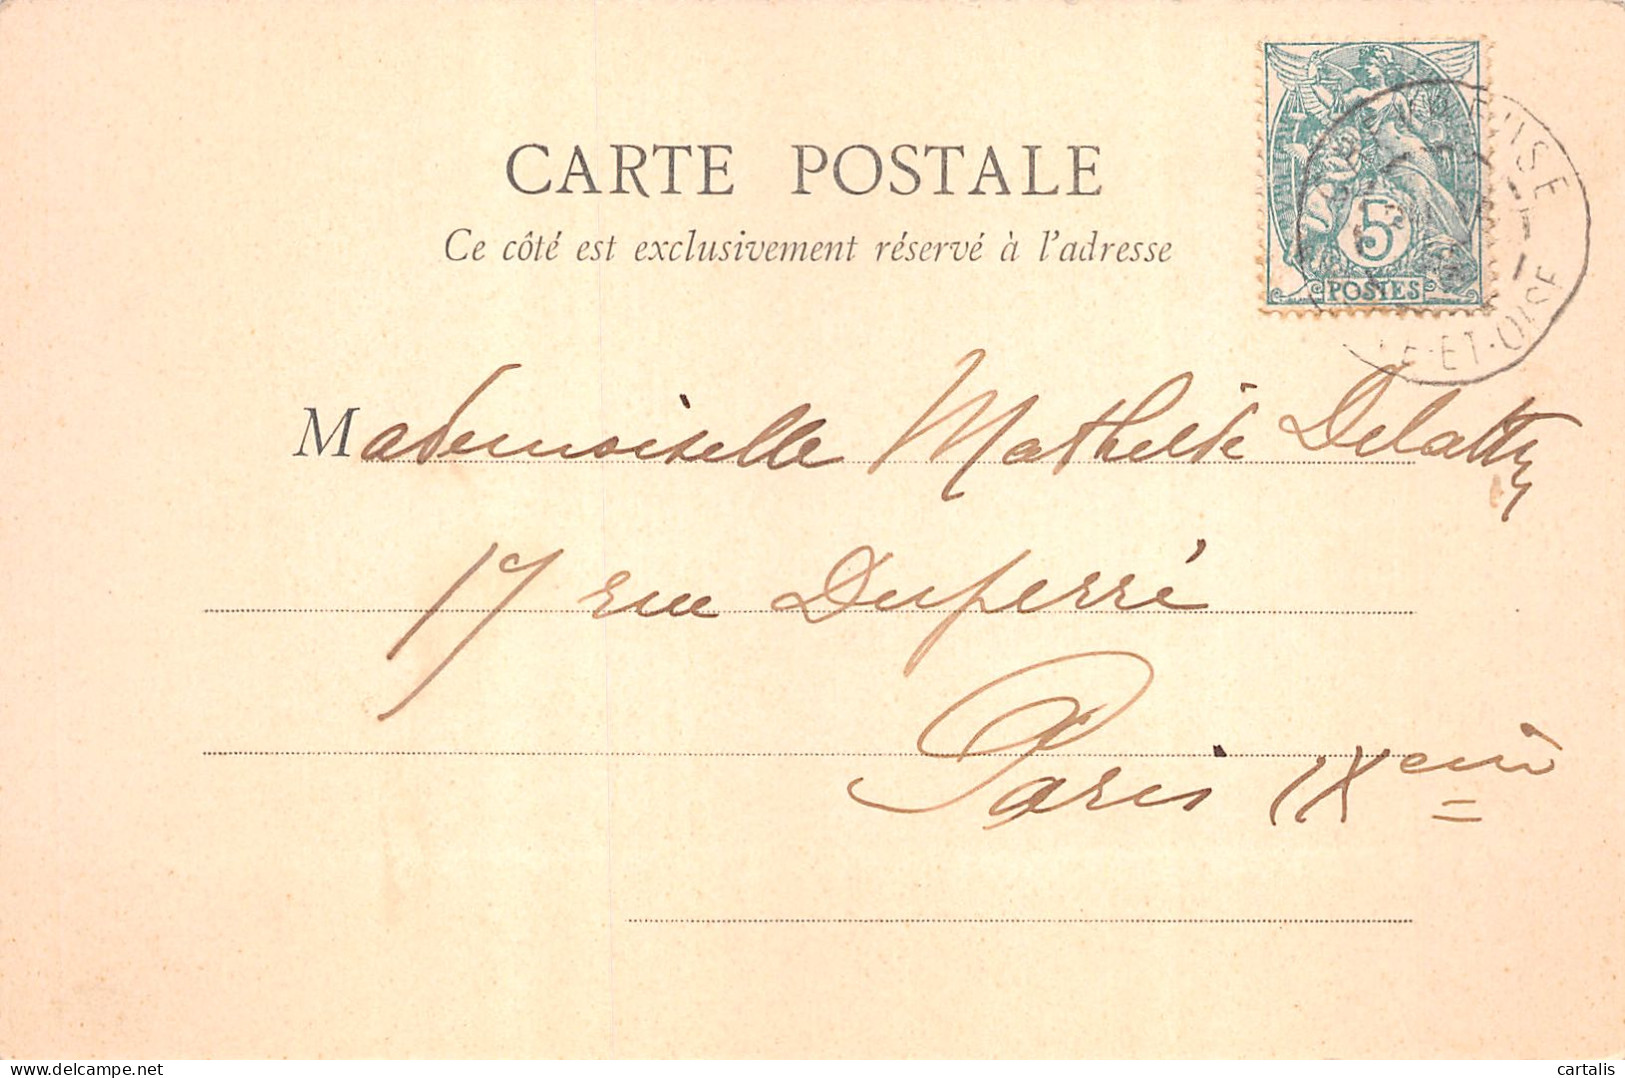 CARTE POSTALE
Ce côté est exclusivement réservé à l'adresse
5
POSTES
ET-OISE
Mademoiselle Mathilde Delattre
17 rue Duperré
Paris IXème
delcampe.net
cartalis